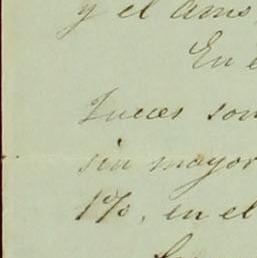 y el amo
En e
Jueces son
sin mayor
1%, en el